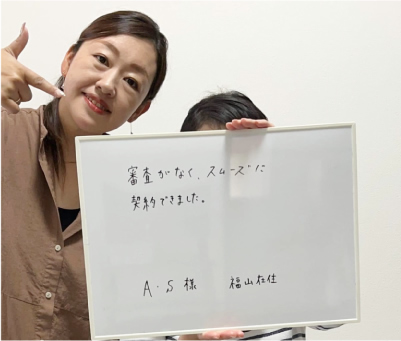 審査がなく、スムーズに
契約できました。
A・S様 福山在住